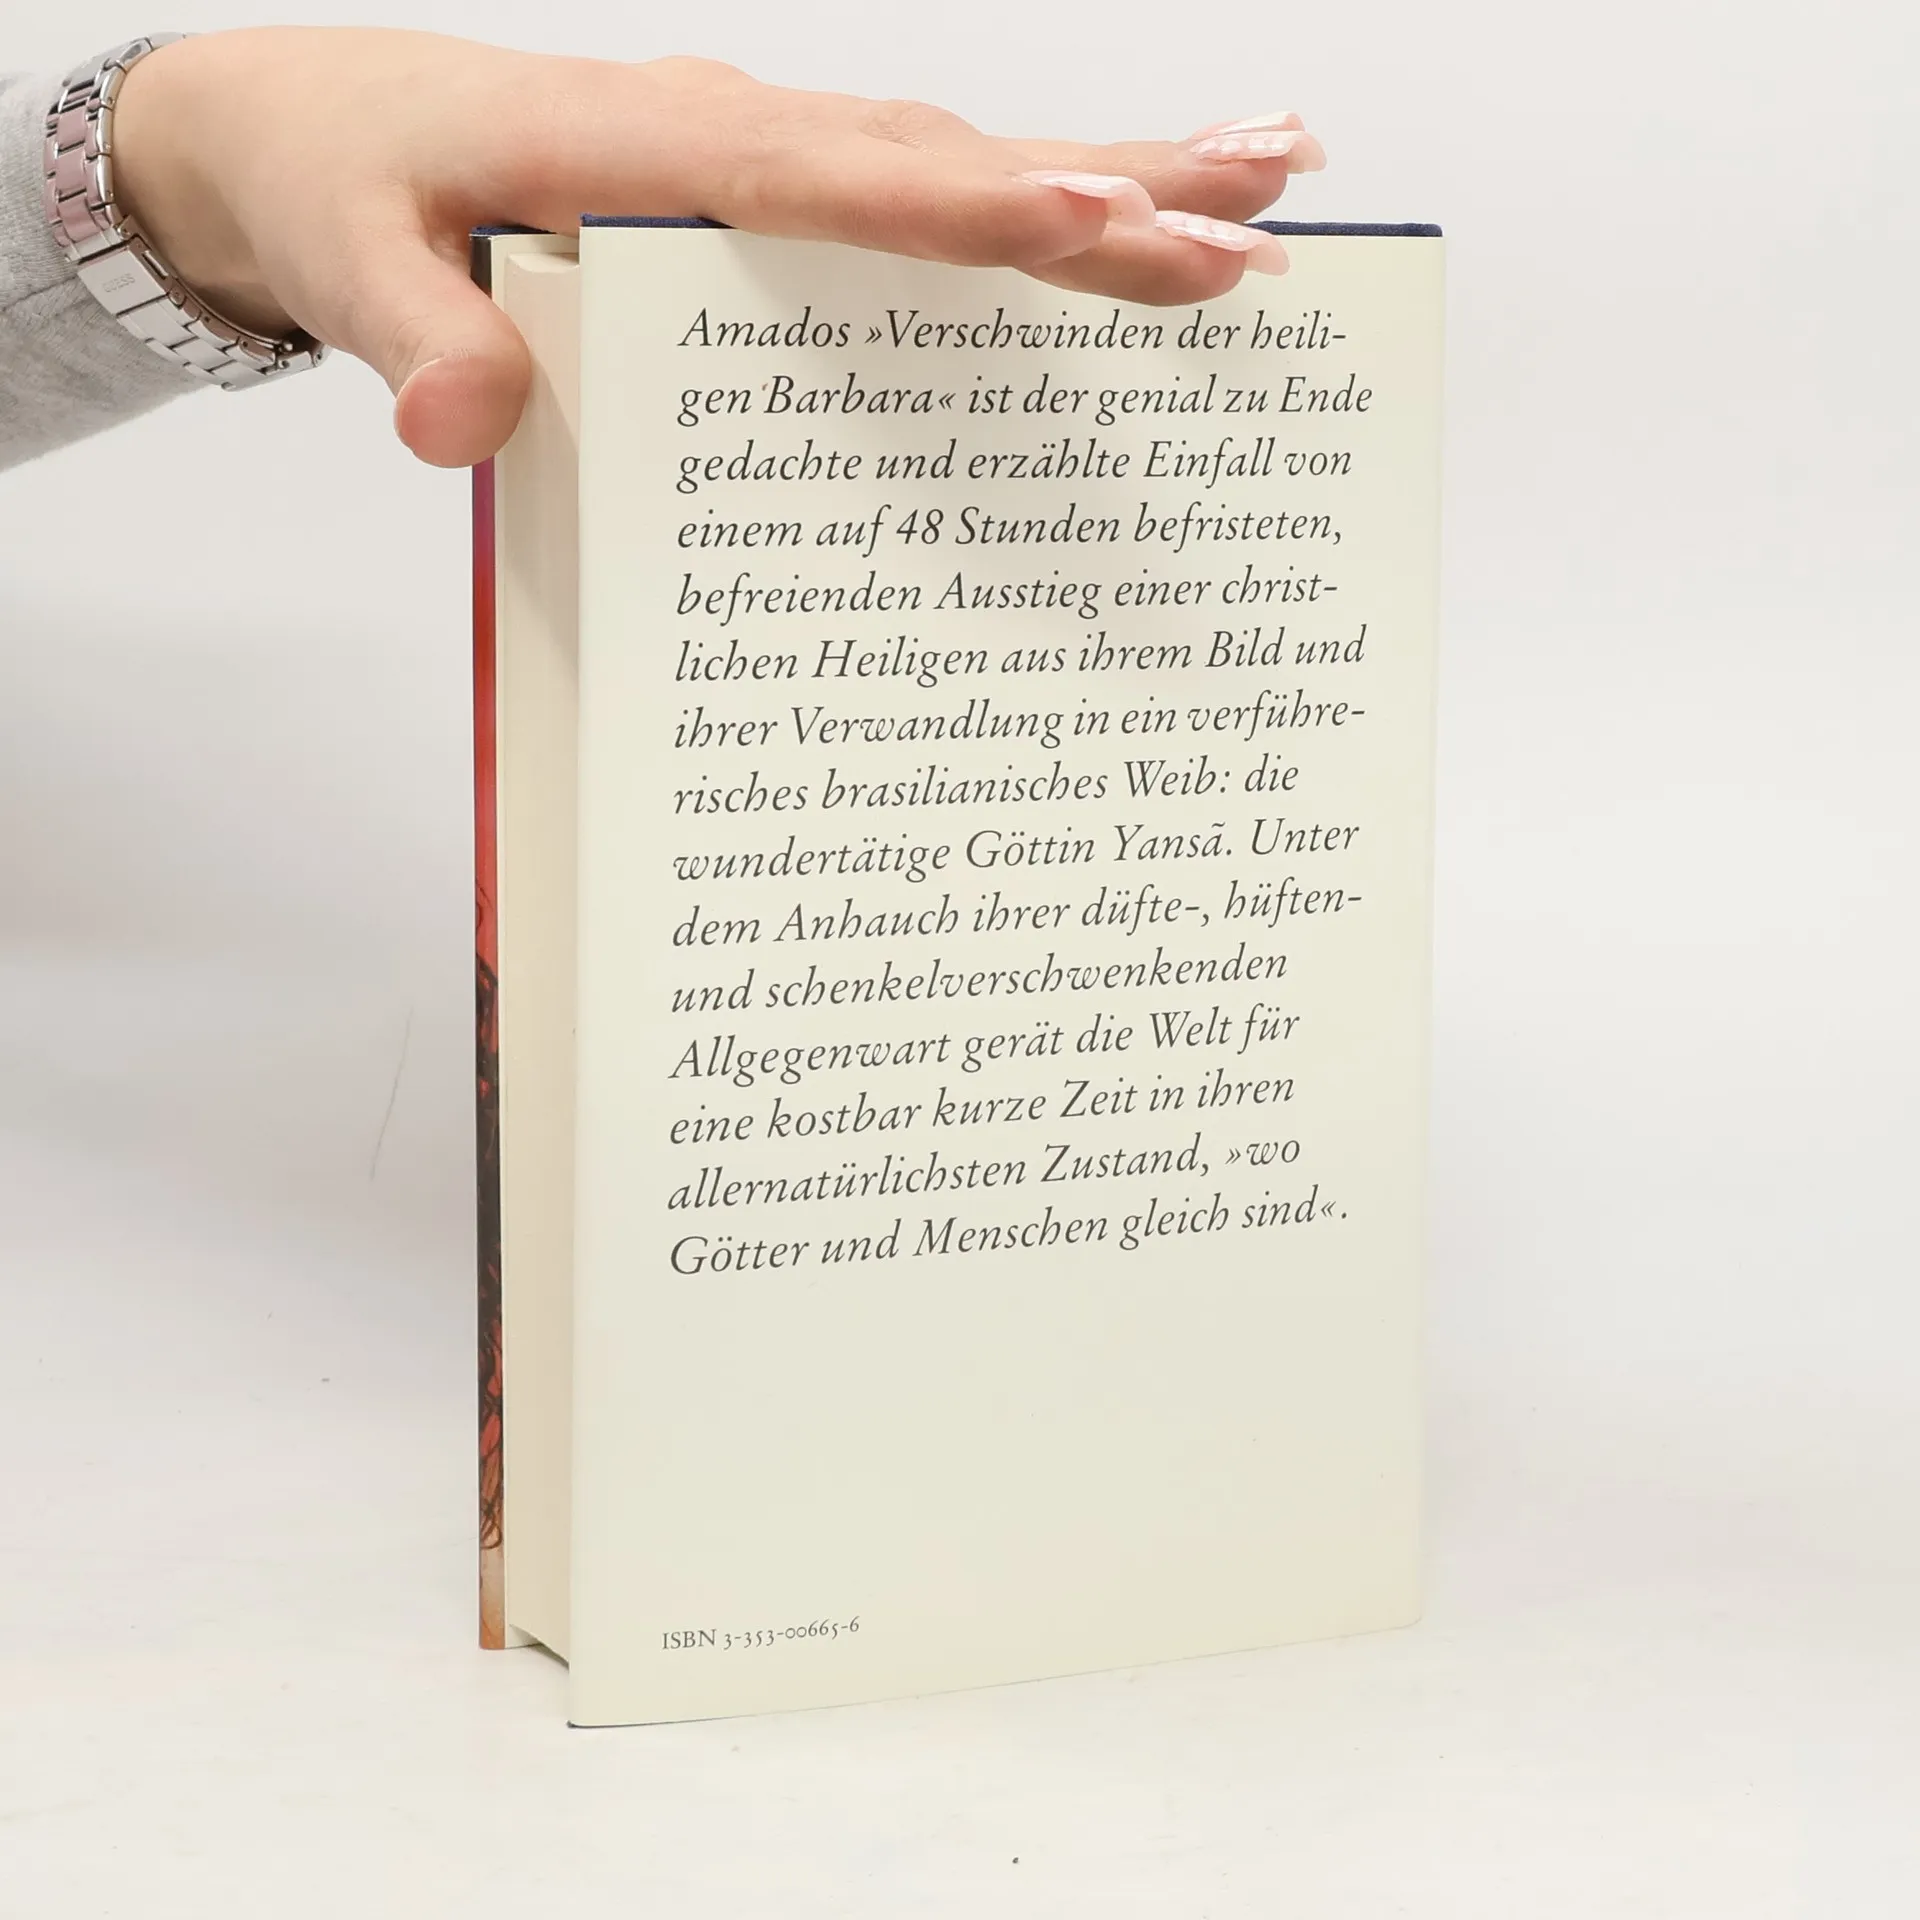 Amados »Verschwinden der heili-
gen Barbara« ist der genial zu Ende
gedachte und erzählte Einfall von
einem auf 48 Stunden befristeten,
befreienden Ausstieg einer christ-
lichen Heiligen aus ihrem Bild und
ihrer Verwandlung in ein verführe-
risches brasilianisches Weib: die
wundertätige Göttin Yansã. Unter
dem Anhauch ihrer düfte-, hüften-
und schenkelverschwenkenden
Allgegenwart gerät die Welt für
eine kostbar kurze Zeit in ihren
allernatürlichsten Zustand, »wo
Götter und Menschen gleich sind«.
ISBN 3-353-00665-6
GUESS